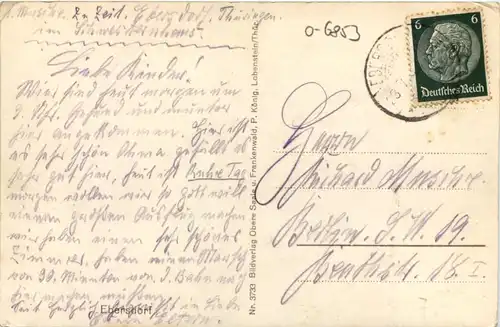 z. Zeit. Ebersdorf, Thüringen
im Schwesternhaus.
Liebe Kinder!
Wir sind heut morgen um
9. Uhr. Gesund und munter
hier angekommen. Hier ist
es sehr schön Oma gefällt es
sehr gut hier, heut ist Ruhe Tag
morgen wollen wir so Gott will
einen großen Ausflug machen
wir haben einen sehr schönes
Zimmer, haben einen Marsch
von 30. Minuten von d. Bahn nach
hier machen
Seit herzlich in Liebe
Eltern.
Ebersdorf
Nr. 3733 Bildverlag Obere Saale u. Frankenwald, P. König, Lobenstein/Thür.
0-6853
6 6
Deutsches Reich
Herrn
Richard
Berlin. S.W. 19.
I